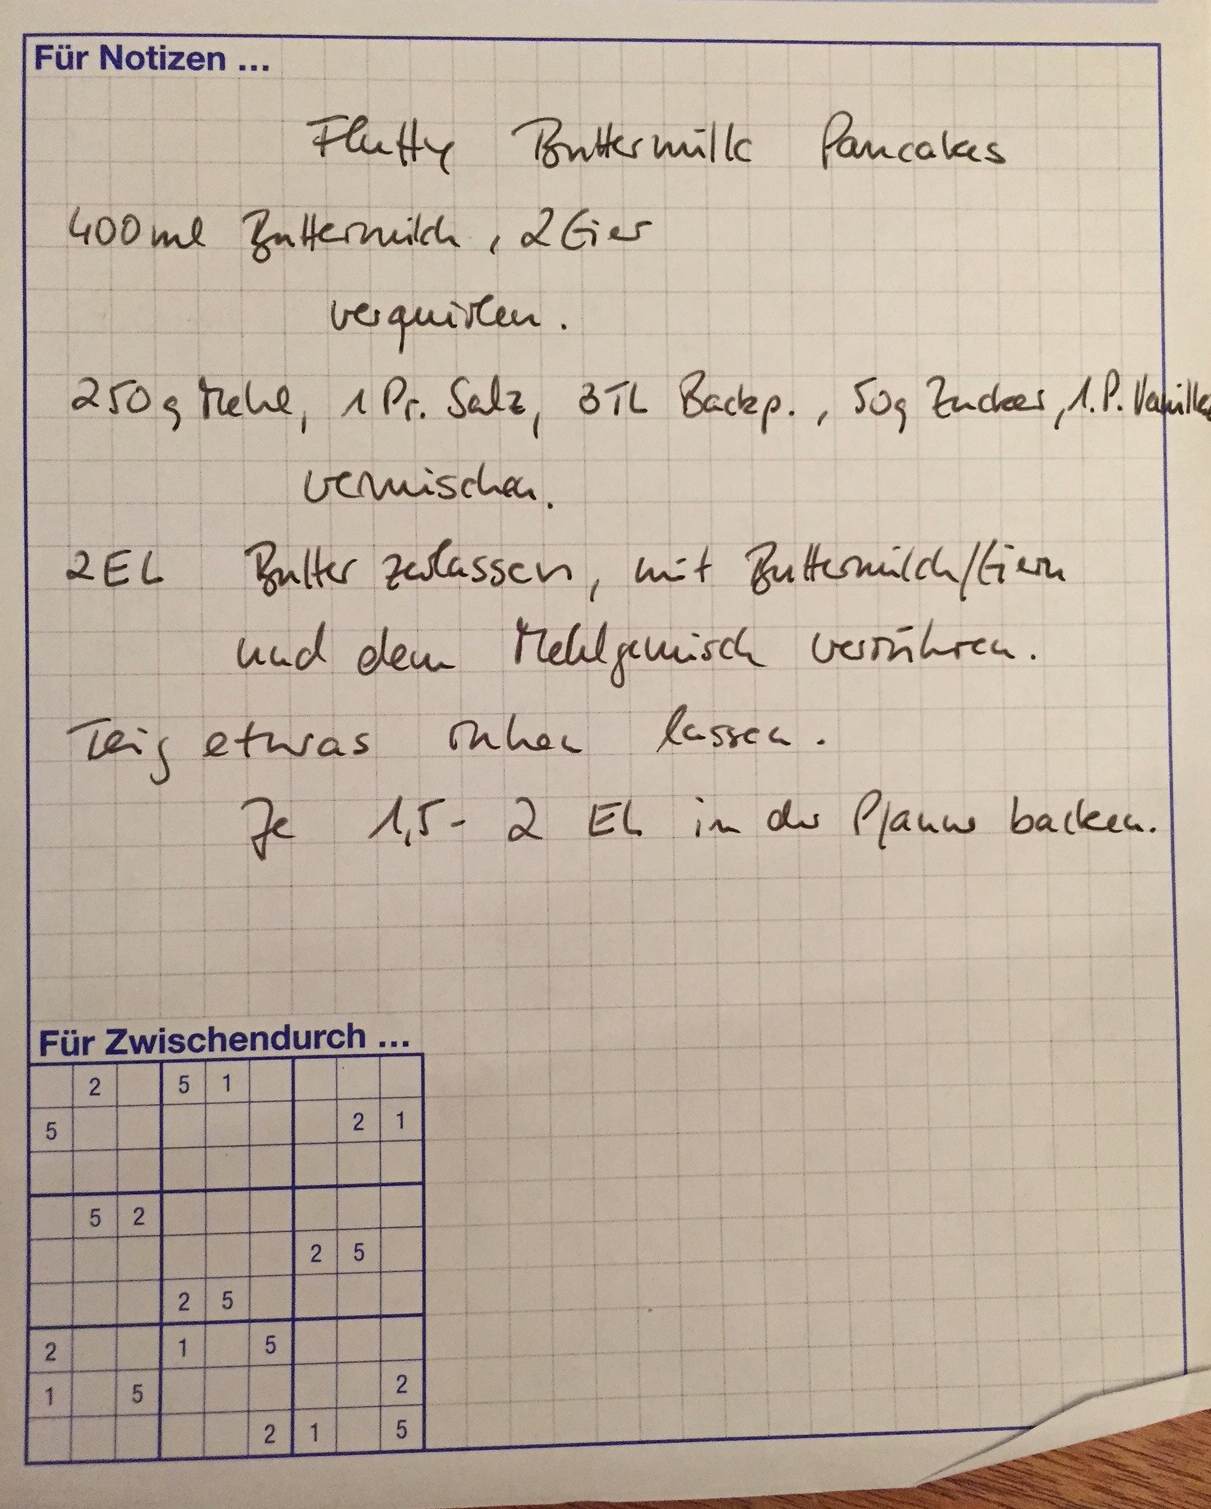 Für Notizen ...
Fluffy Buttermilk Pancakes
400 ml Buttermilch, 2 Eier
verquirlen.
250g Mehl, 1 Pr. Salz, 3TL Backp., 50g Zucker, 1.P. Vanille
vermischen.
2EL Butter zerlassen, mit Buttermilch/Eiern
und dem Mehlgemisch verrühren.
Teig etwas ruhen lassen.
Je 1,5 - 2 EL in der Pfanne backen.
Für Zwischendurch ...
2 5 1
5 2 1
5 2
2 5
2 5
2 1 5
1 5 2
2 1 5